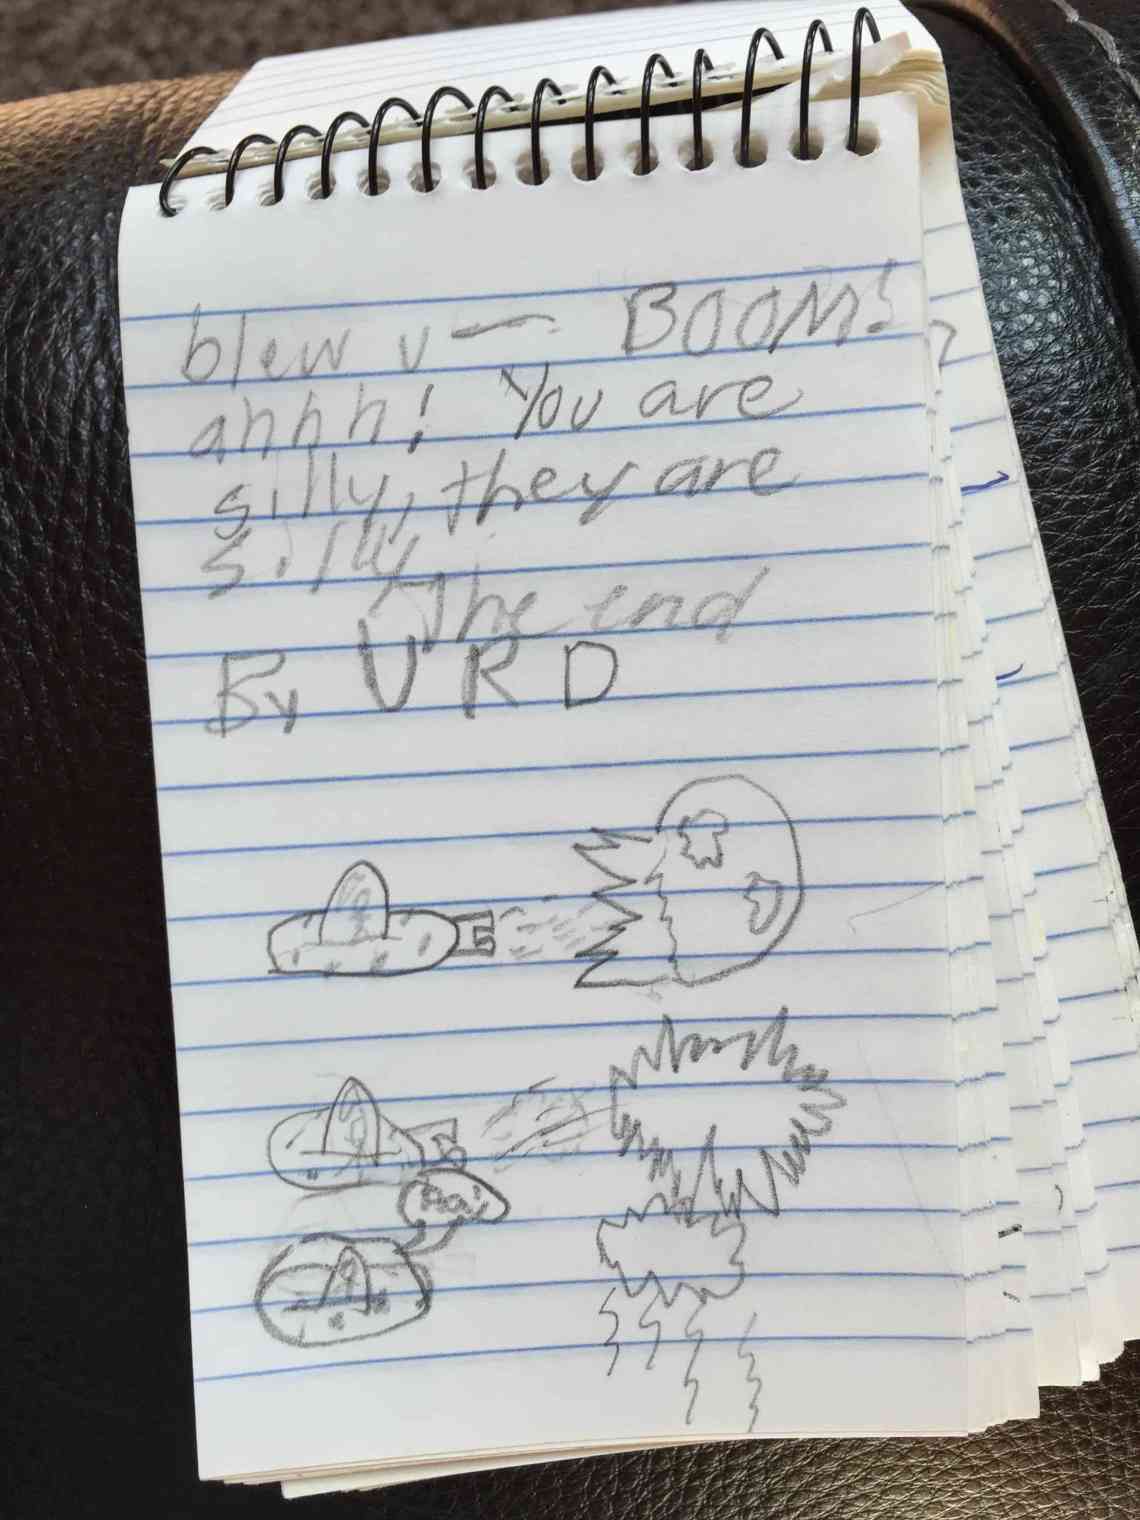 blew u— BOOM!
ahhh! You are
silly, they are
silly.
The end
By URD
Ha!